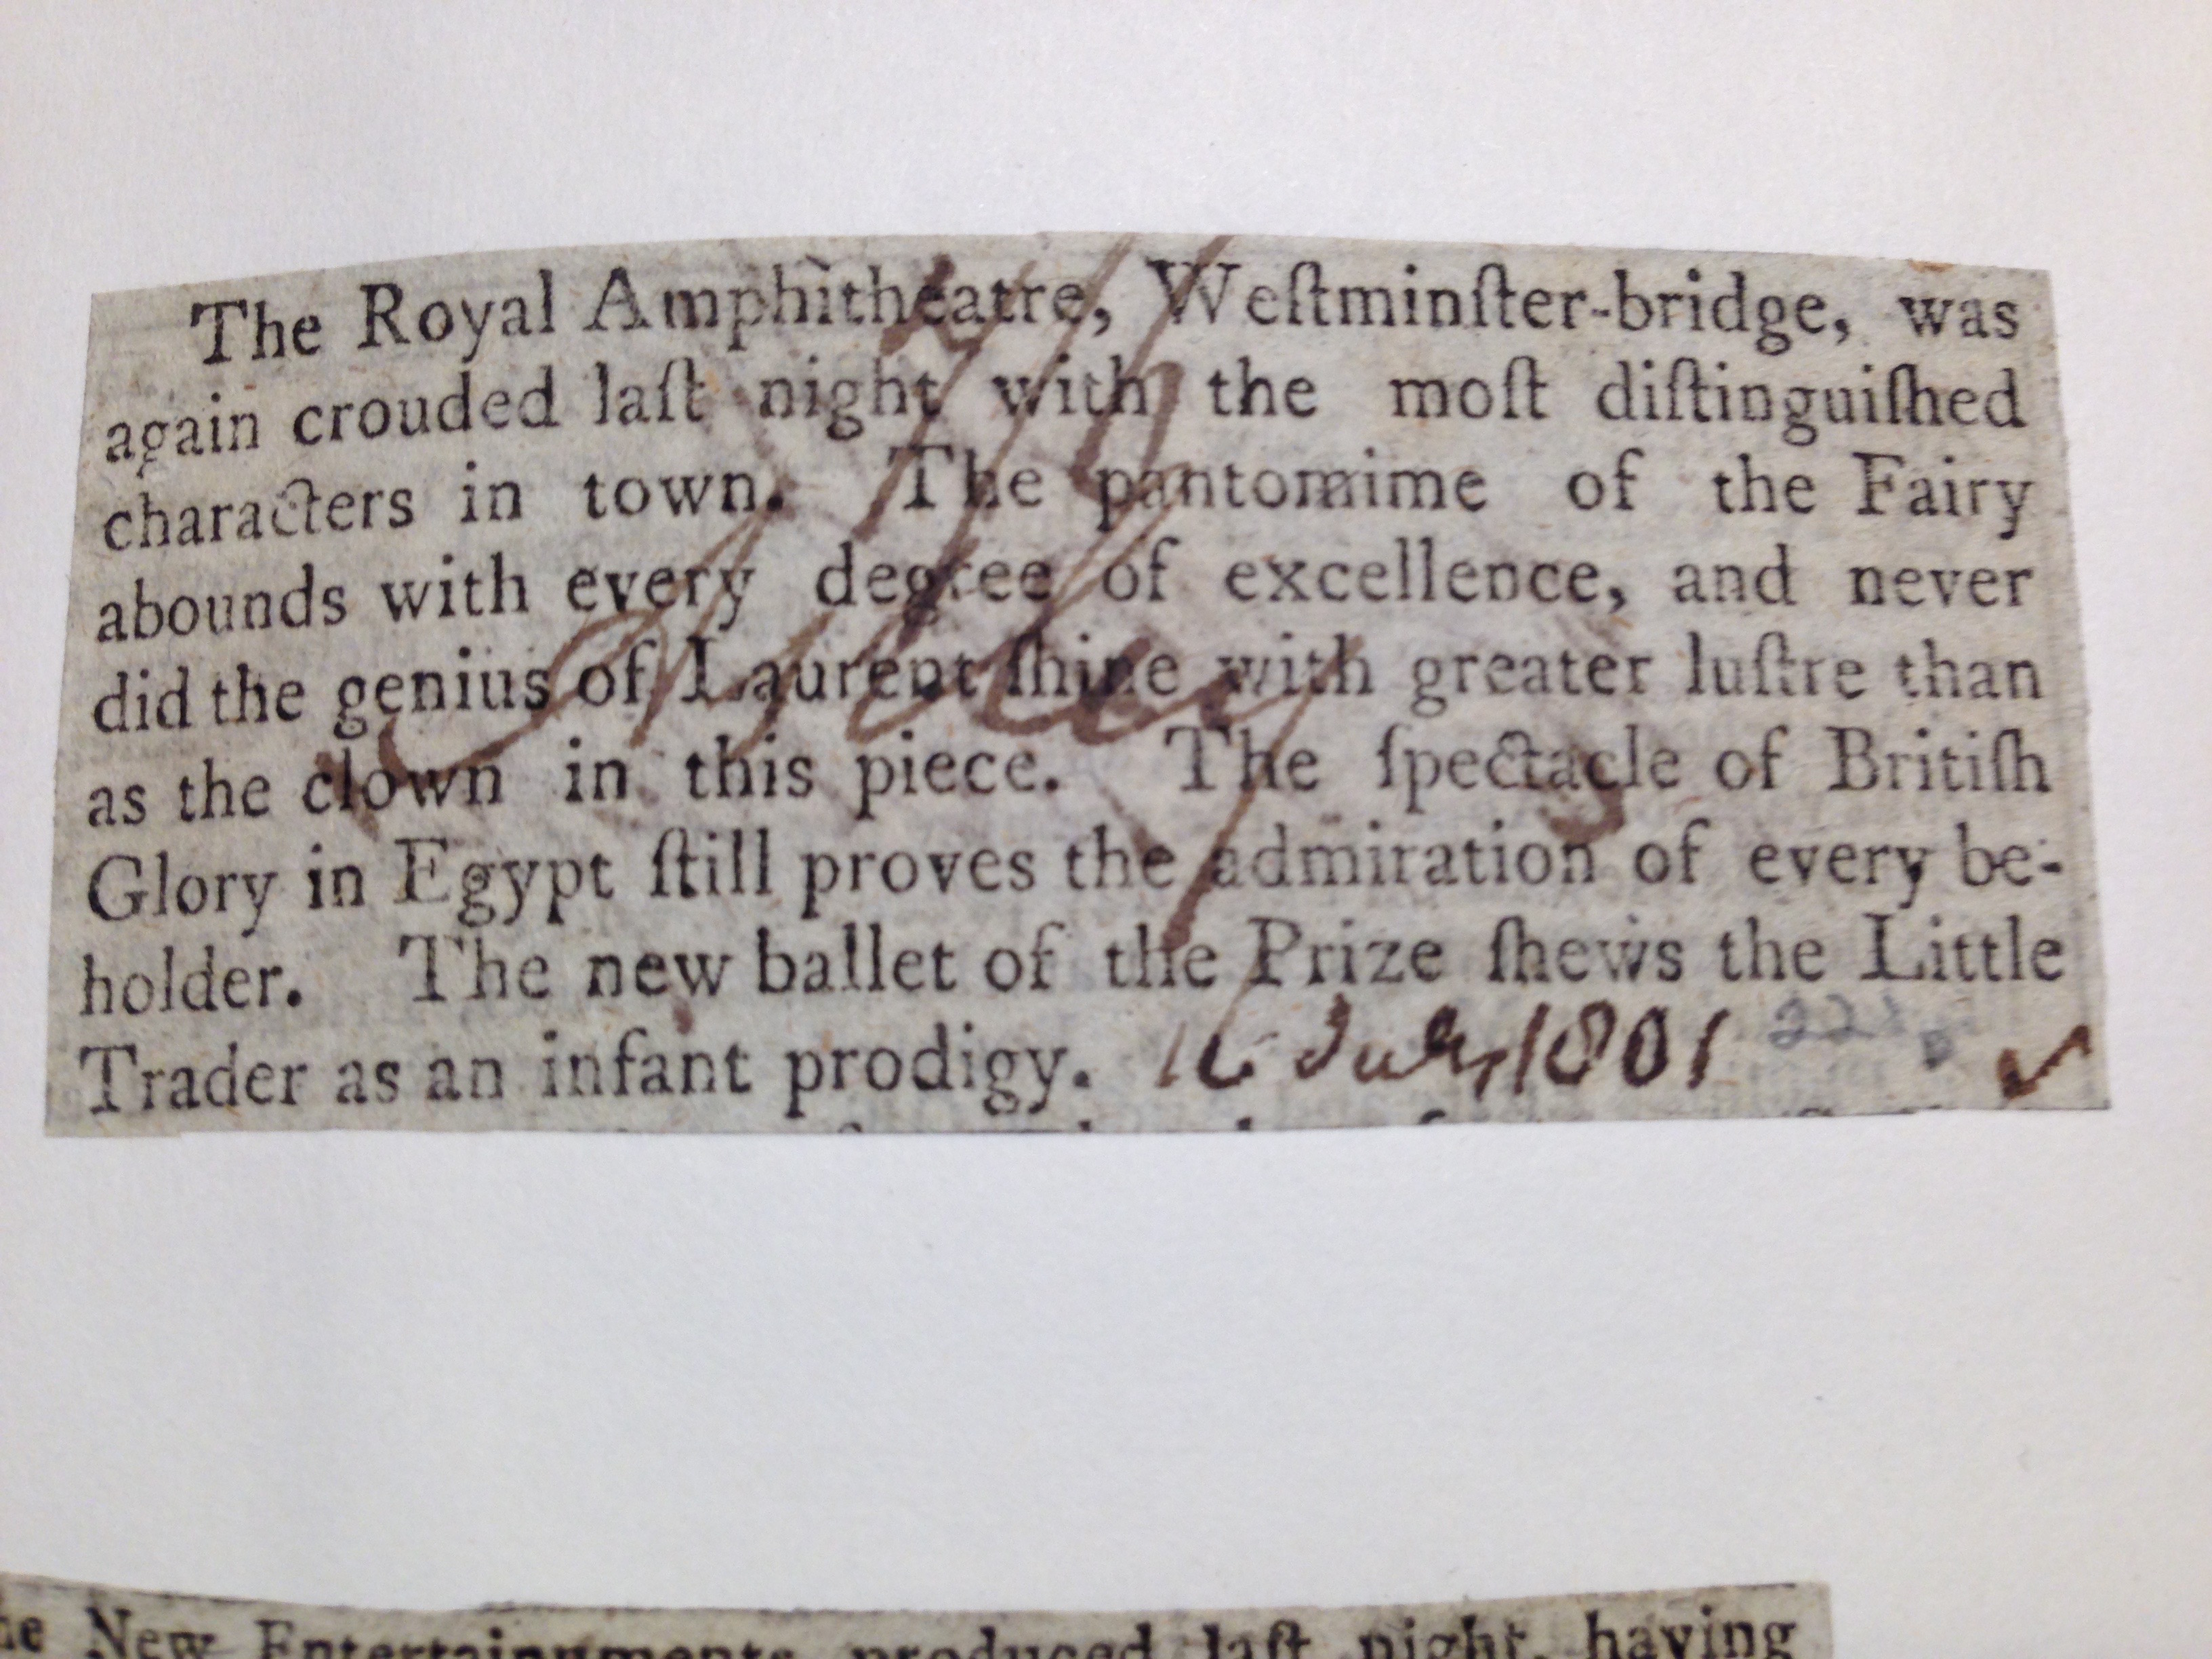 The Royal Amphitheatre, Weſtminſter-bridge, was
again crouded laſt night with the moſt diſtinguiſhed
characters in town. The pantomime of the Fairy
abounds with every degree of excellence, and never
did the genius of Laurent ſhine with greater luſtre than
as the clown in this piece. The ſpectacle of Britiſh
Glory in Egypt ſtill proves the admiration of every be-
holder. The new ballet of the Prize ſhews the Little
Trader as an infant prodigy. 16 July 1801
New Entertainments produced laſt night, having